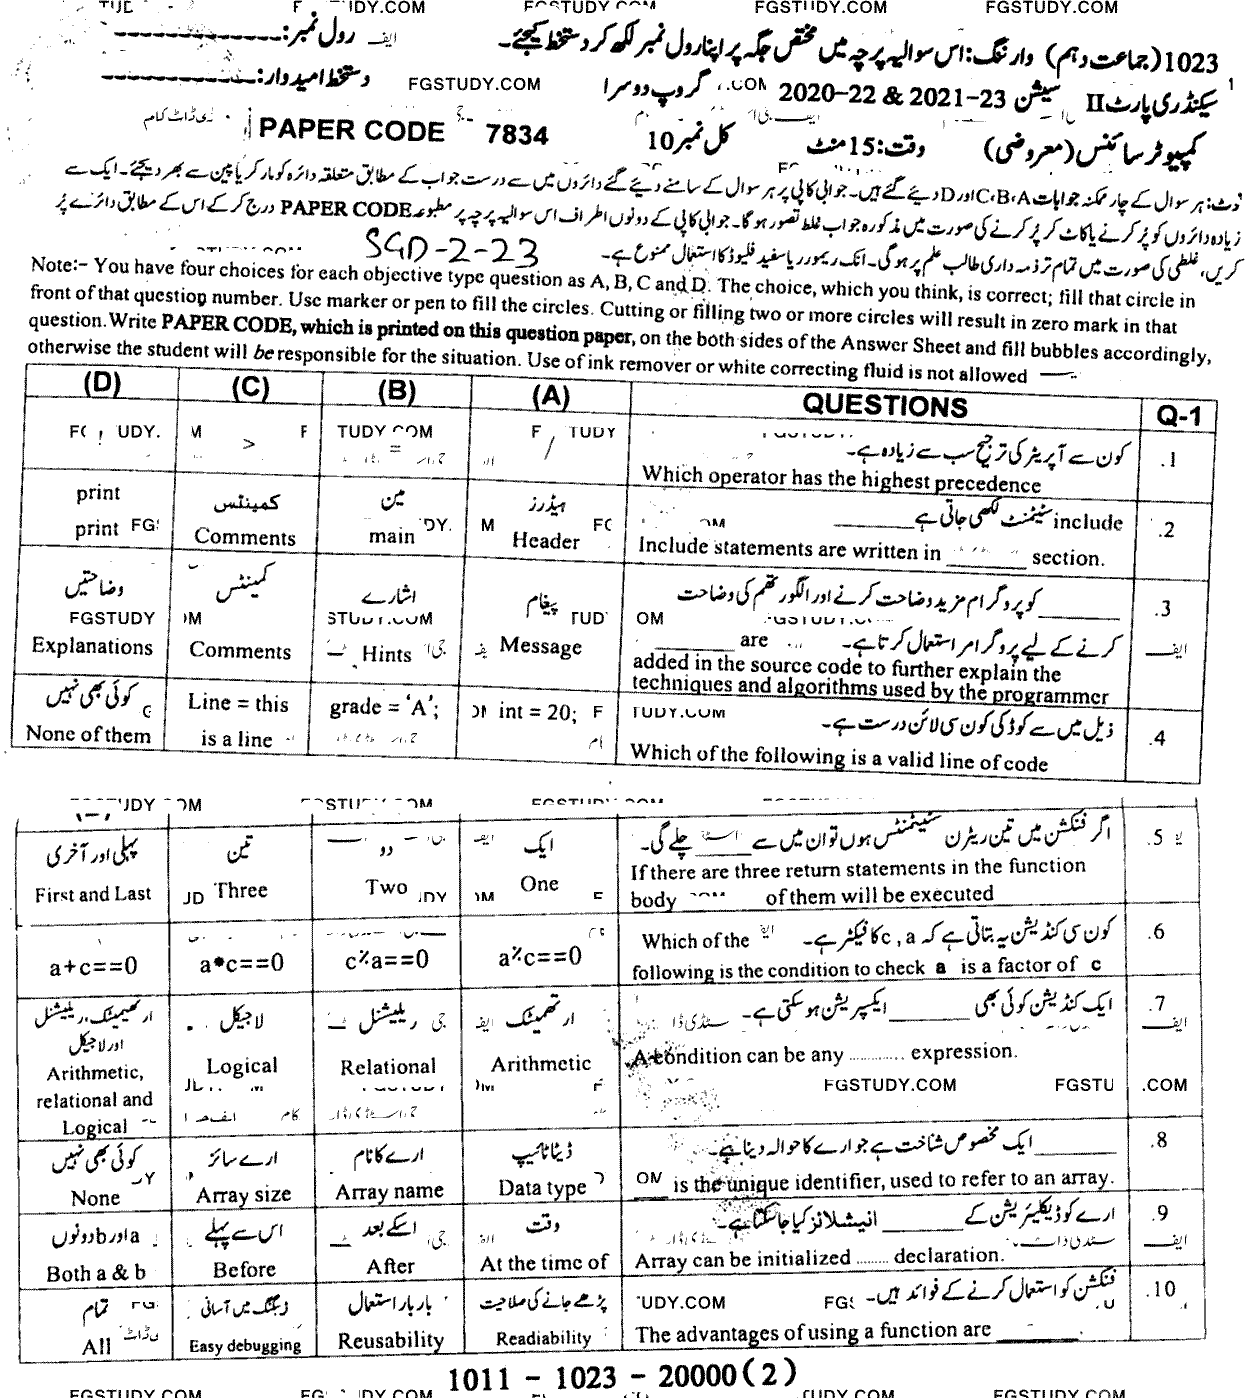 FGSTUDY.COM FGSTUDY.COM FGSTUDY.COM
1023 (جماعت دہم) وارننگ: اس سوالیہ پرچہ میں مختص جگہ پر اپنا رول نمبر لکھ کر دستخط کیجئے۔ رول نمبر:
سیکنڈری پارٹ II سیشن 2020-22 & 2021-23 گروپ دوسرا FGSTUDY.COM دستخط امیدوار:
کمپیوٹر سائنس (معروضی) وقت: 15 منٹ کل نمبر 10 PAPER CODE 7834
نوٹ: ہر سوال کے چار ممکنہ جوابات A،B،C اور D دیئے گئے ہیں۔ جوابی کاپی پر ہر سوال کے سامنے دیئے گئے دائروں میں سے درست جواب کے مطابق متعلقہ دائرہ کو مارکر یا پین سے بھر دیجئے۔ ایک سے
زیادہ دائروں کو پُر کرنے یا کاٹ کر پُر کرنے کی صورت میں مذکورہ جواب غلط تصور ہو گا۔ جوابی کاپی کے دونوں اطراف اس سوالیہ پرچہ پر مطبوعہ PAPER CODE درج کر کے اس کے مطابق دائرے پُر
کریں، غلطی کی صورت میں تمام تر ذمہ داری طالب علم پر ہو گی۔ انک ریموور یا سفید فلیوڈ کا استعمال ممنوع ہے۔ SGD-2-23
Note:- You have four choices for each objective type question as A, B, C and D. The choice, which you think, is correct; fill that circle in
front of that question number. Use marker or pen to fill the circles. Cutting or filling two or more circles will result in zero mark in that
question. Write PAPER CODE, which is printed on this question paper, on the both sides of the Answer Sheet and fill bubbles accordingly,
otherwise the student will be responsible for the situation. Use of ink remover or white correcting fluid is not allowed
(D) (C) (B) (A) QUESTIONS Q-1
کون سے آپریٹر کی ترجیح سب سے زیادہ ہے۔ .1
> = / Which operator has the highest precedence
print کمینٹس مین ہیڈرز include سٹیٹمنٹ لکھی جاتی ہے ______ .2
print Comments main Header Include statements are written in ______ section.
وضاحتیں کمینٹس اشارے پیغام ______ کو پروگرام مزید وضاحت کرنے اور الگورتھم کی وضاحت .3
کرنے کے لیے پروگرامر استعمال کرتا ہے۔ ______ are
Explanations Comments Hints Message added in the source code to further explain the
techniques and algorithms used by the programmer
کوئی بھی نہیں Line = this grade = 'A'; int = 20; ذیل میں سے کوڈ کی کون سی لائن درست ہے۔ .4
None of them is a line Which of the following is a valid line of code
پہلی اور آخری تین دو ایک اگر فنکشن میں تین ریٹرن سٹیٹمنٹس ہوں تو ان میں سے ______ چلے گی۔ .5
First and Last Three Two One If there are three return statements in the function
body of them will be executed
کون سی کنڈیشن یہ بتاتی ہے کہ c ,a کا فیکٹر ہے۔ Which of the .6
a+c==0 a*c==0 c%a==0 a%c==0 following is the condition to check a is a factor of c
ارتھمیٹک، ریلیشنل اور لاجیکل لاجیکل ریلیشنل ارتھمیٹک ایک کنڈیشن کوئی بھی ______ ایکسپریشن ہو سکتی ہے۔ .7
Arithmetic, relational and Logical Logical Relational Arithmetic A condition can be any ............ expression.
FGSTUDY.COM FGSTU .COM
کوئی بھی نہیں ارے سائز ارے کا نام ڈیٹا ٹائپ ______ ایک مخصوص شناخت ہے جو ارے کا حوالہ دیتا ہے۔ .8
None Array size Array name Data type ____ is the unique identifier, used to refer to an array.
a اور b دونوں اس سے پہلے اسکے بعد وقت ارے کو ڈیکلیریشن کے ______ انیشلائز کیا جا سکتا ہے۔ .9
Both a & b Before After At the time of Array can be initialized ........ declaration.
تمام ڈیبگنگ میں آسانی بار بار استعمال پڑھے جانے کی صلاحیت فنکشن کو استعمال کرنے کے فوائد ہیں۔ .10
All Easy debugging Reusability Readiability The advantages of using a function are ______.
1011 - 1023 - 20000 (2)
FGSTUDY.COM FGSTUDY.COM